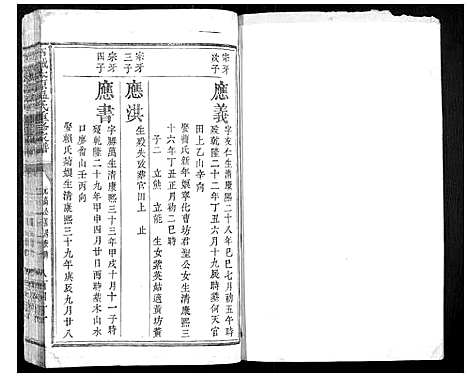 宗牙
次子
應義
字友仁生清康熙二十八年己巳七月初五午時
歿乾隆二十二年丁丑六月十九辰時葬何天官
田上乙山辛向
娶曹氏新年娘寧化曹坊君聖公女生清康熙三
十六年丁丑正月初二巳時
子二 立熊 立能 生女紫英姑適黃坊黃
宗牙
三子
應洪
生歿失故葬官田上 止
宗牙
四子
應書
字勝萬生清康熙三十三年甲戌十月十一子時
歿乾隆二十九年甲申四月廿日酉時葬木山水
口廖畲山壬丙向
娶賴氏 娘生清康熙三十九年庚辰九月廿八